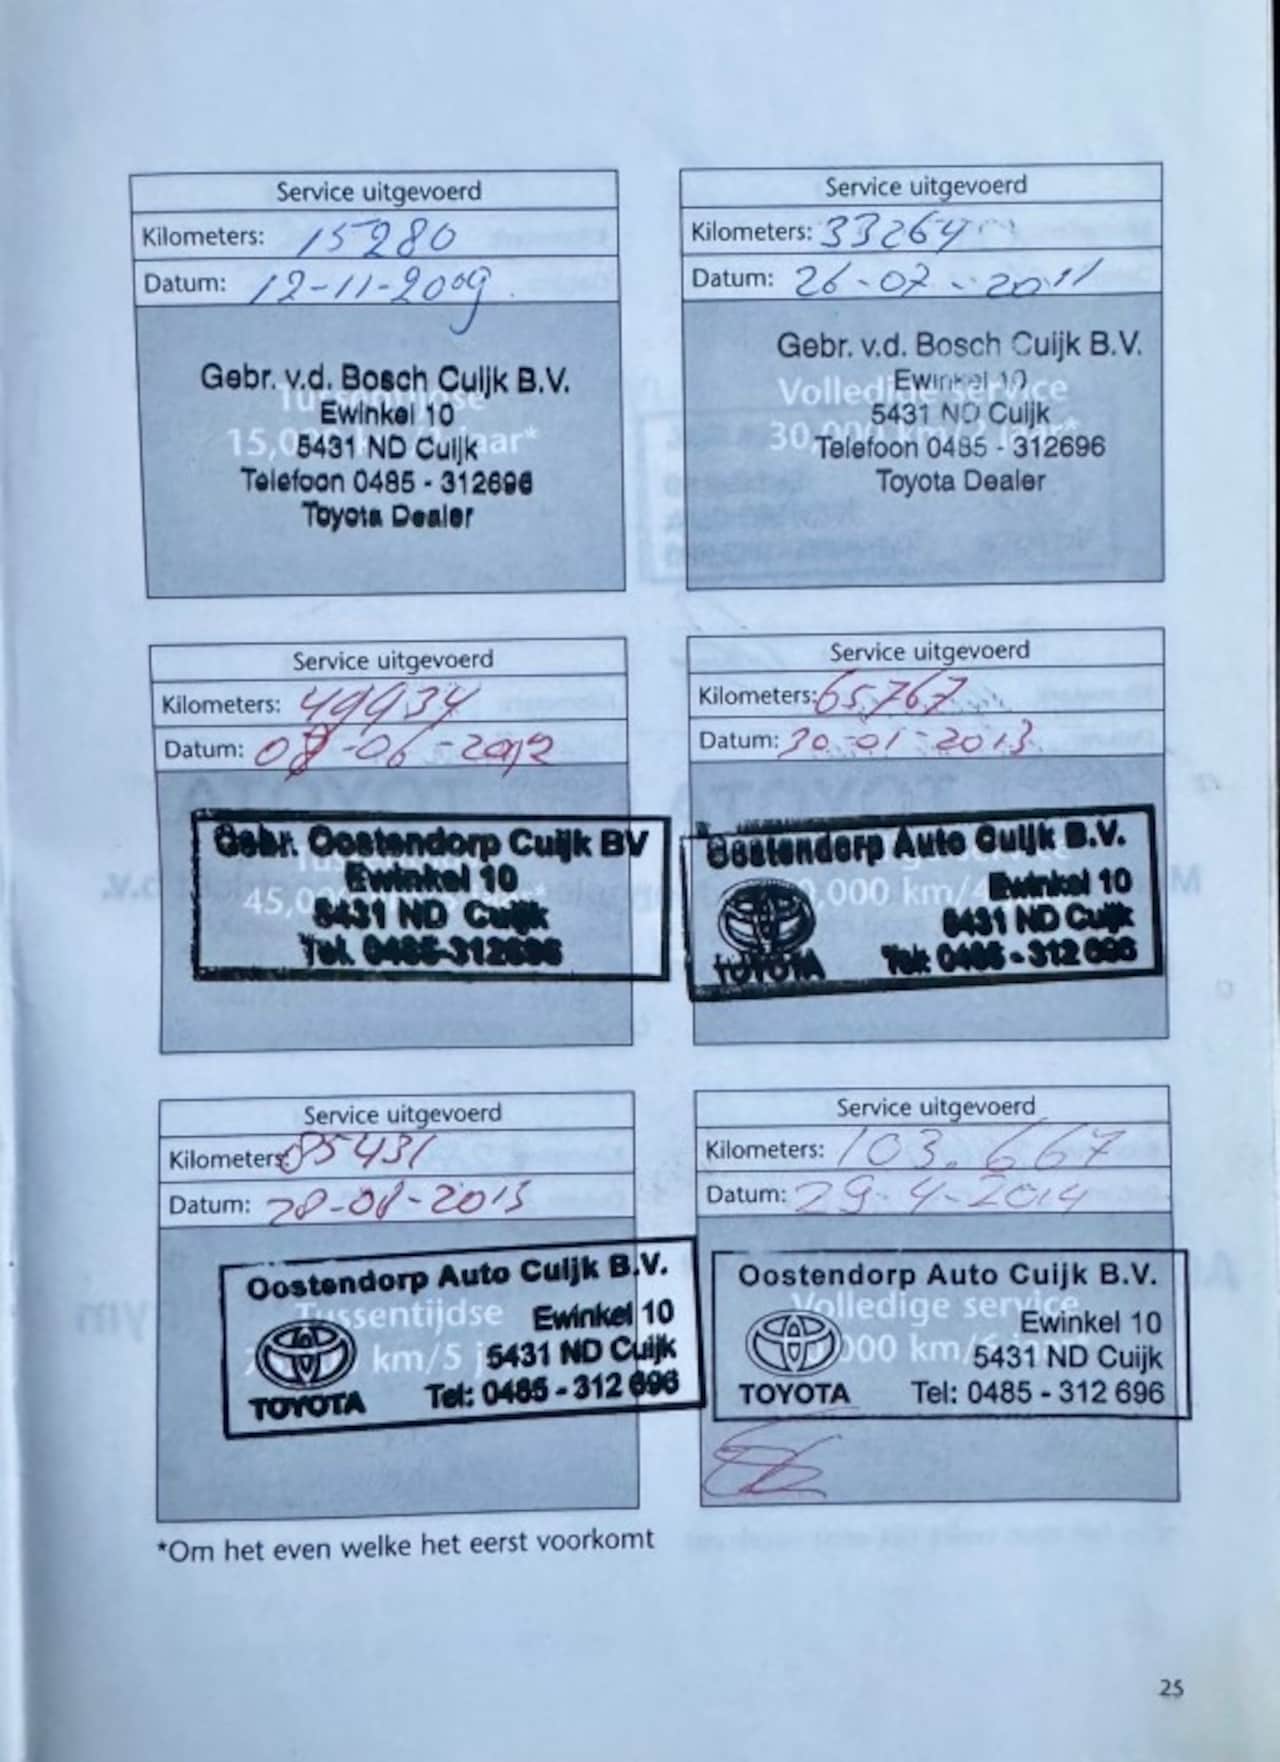 Service uitgevoerd
Kilometers: 15280
Datum: 12-11-2009
Gebr. v.d. Bosch Cuijk B.V.
Ewinkel 10
5431 ND Cuijk
Telefoon 0485 - 312696
Toyota Dealer
Service uitgevoerd
Kilometers: 33264
Datum: 26-07-2011
Gebr. v.d. Bosch Cuijk B.V.
Volledige service
Ewinkel 10
5431 ND Cuijk
Telefoon 0485 - 312696
Toyota Dealer
Service uitgevoerd
Kilometers: 49934
Datum: -06-2012
Gebr. Oostendorp Cuijk BV
Ewinkel 10
5431 ND Cuijk
Tel. 0485-312696
Service uitgevoerd
Kilometers: 65767
Datum: 30-01-2013
Oostendorp Auto Cuijk B.V.
Ewinkel 10
5431 ND Cuijk
TOYOTA Tel: 0485 - 312 696
Service uitgevoerd
Kilometers: 85431
Datum: 28-08-2013
Oostendorp Auto Cuijk B.V.
Tussentijdse
Ewinkel 10
km/5
5431 ND Cuijk
TOYOTA Tel: 0485 - 312 696
Service uitgevoerd
Kilometers: 103.667
Datum: 29-4-2014
Oostendorp Auto Cuijk B.V.
Volledige service
Ewinkel 10
000 km/6
5431 ND Cuijk
TOYOTA Tel: 0485 - 312 696
*Om het even welke het eerst voorkomt
25